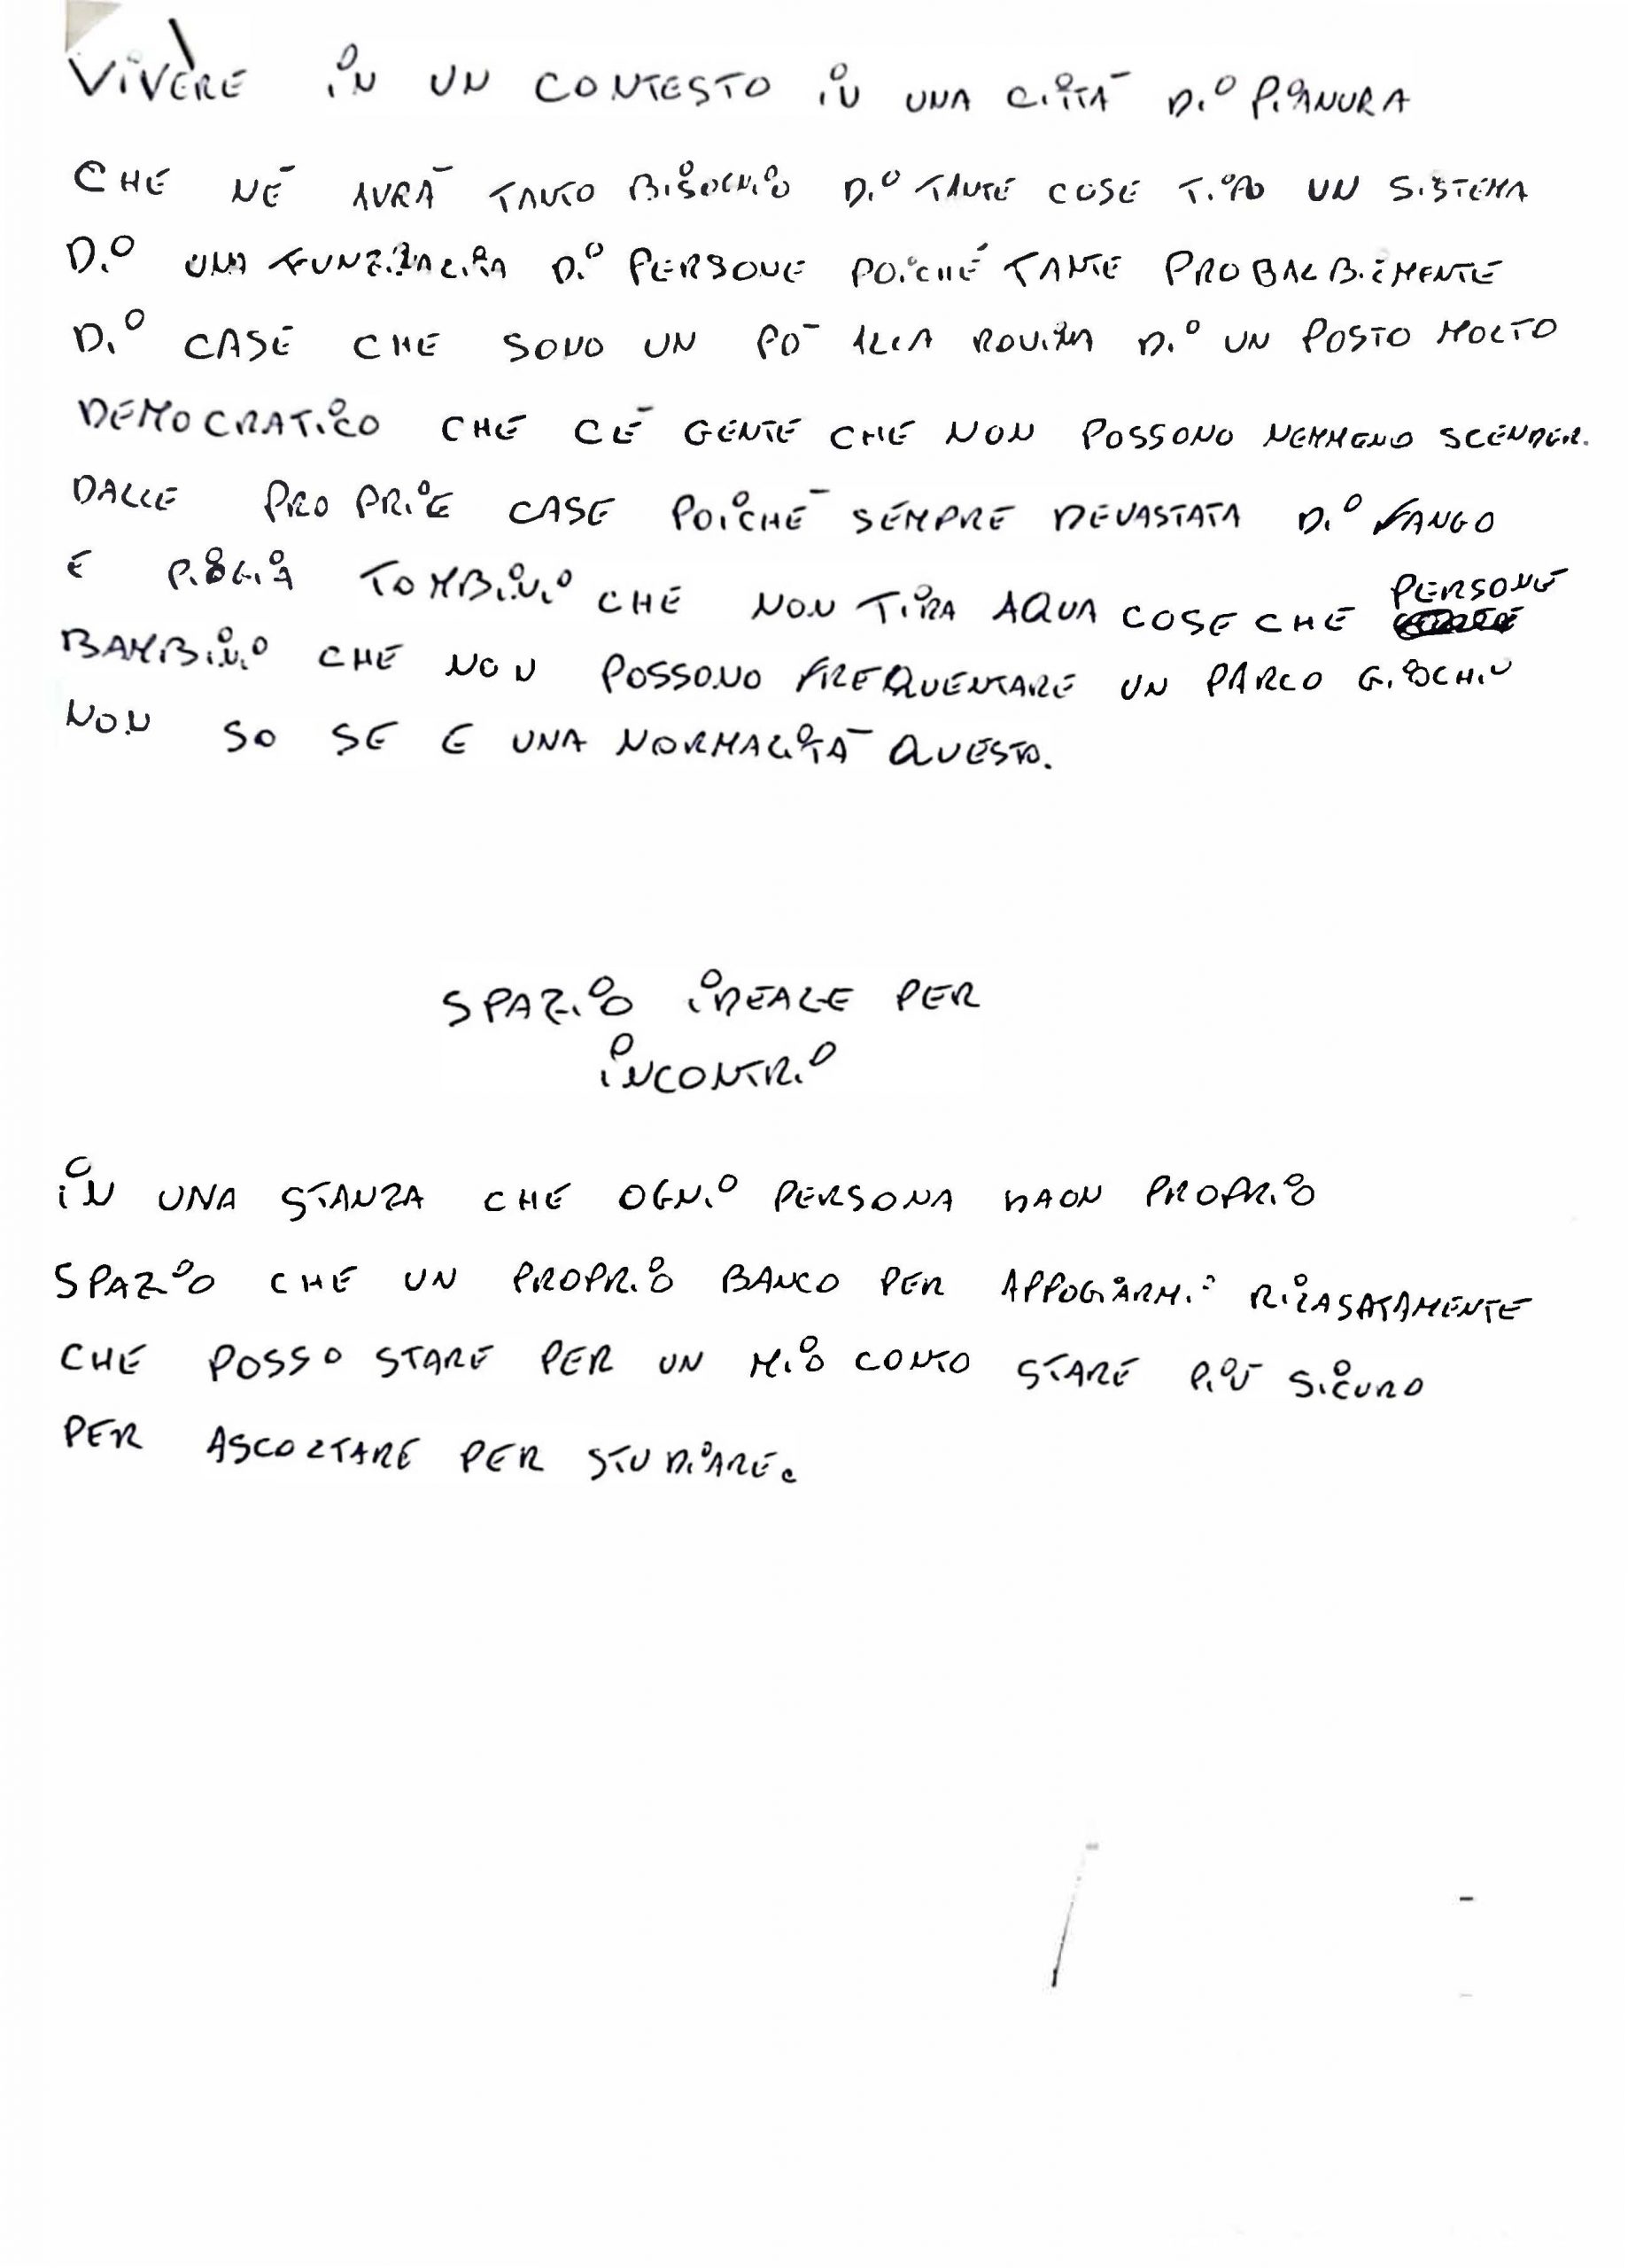 VIVERE IN UN CONTESTO IN UNA CITTÀ DI PIANURA
CHE NÈ AVRÀ TANTO BISOGNIO DI TANTE COSE TIPO UN SISTEMA
DI UNA FUNZINALITA DI PERSONE POICHÉ TANTE PROBALBIMENTE
DI CASE CHE SONO UN PÒ ALLA ROVINA DI UN POSTO MOLTO
DEMOCRATICO CHE CÈ GENTE CHE NON POSSONO NEMMENO SCENDER.
DALLE PROPRIE CASE POICHÈ SEMPRE DEVASTATA DI FANGO
E PIOGIA TOMBINI CHE NON TIRA AQUA COSE CHE PERSONE
BAMBINI CHE NON POSSONO FREQUENTARE UN PARCO GIOCHI
NON SO SE E UNA NORMALITÀ QUESTO.
SPAZIO IDEALE PER
INCONTRI
IN UNA STANZA CHE OGNI PERSONA PROPRIO
SPAZIO CHE UN PROPRIO BANCO PER APPOGIARMI RILASATAMENTE
CHE POSSO STARE PER UN MIO CONTO STARE PIÙ SICURO
PER ASCOLTARE PER STUDIARE.